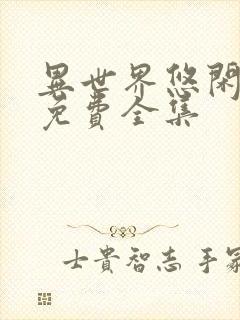 異世界悠閑
免費全集
士貴智志 手冢